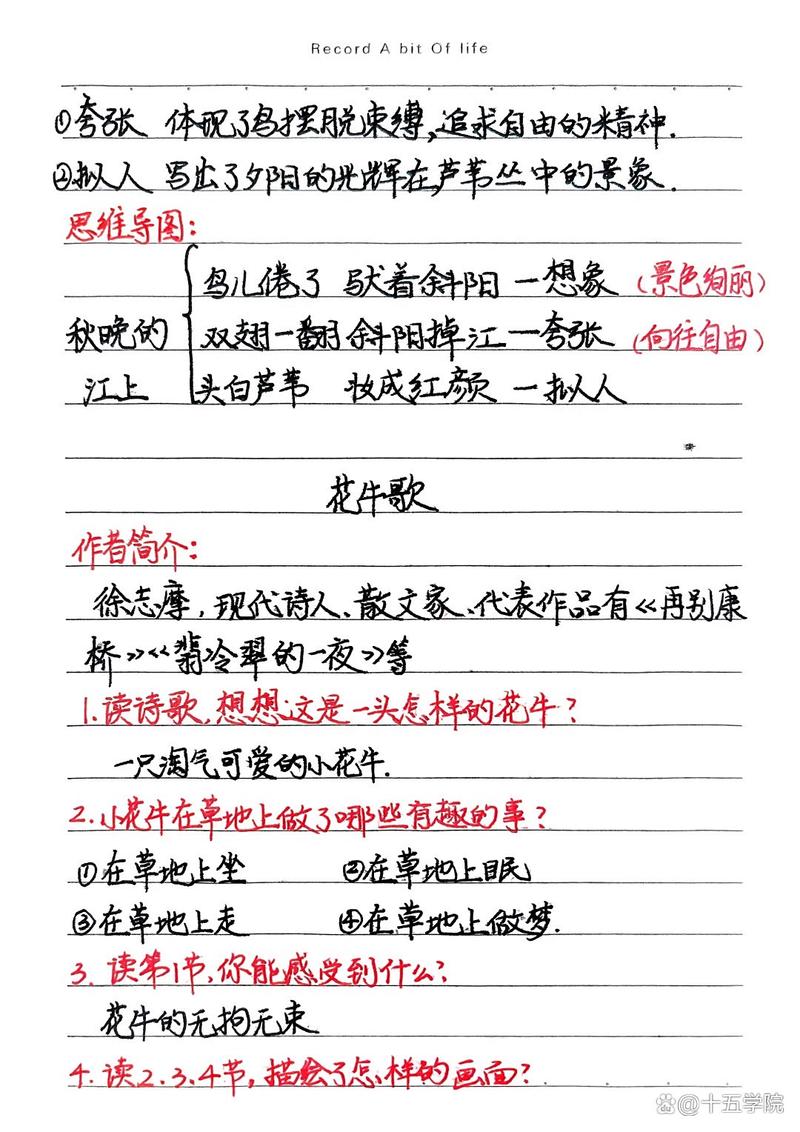 Record A bit Of life
①夸张 体现了鸟摆脱束缚,追求自由的精神.
②拟人 写出了夕阳的光辉在芦苇丛中的景象.
思维导图:
鸟儿倦了 驮着斜阳 一想象 (景色绚丽)
秋晚的 双翅一翻 斜阳掉江 一夸张 (向往自由)
江上 头白芦苇 妆成红颜 一拟人
花牛歌
作者简介:
徐志摩,现代诗人、散文家、代表作品有《再别康
桥》《翡冷翠的一夜》等
1.读诗歌,想想这是一头怎样的花牛?
一只淘气可爱的小花牛.
2.小花牛在草地上做了哪些有趣的事?
①在草地上坐 ②在草地上眠
③在草地上走 ④在草地上做梦.
3.读第1节,你能感受到什么?
花牛的无拘无束
4.读2.3.4节,描绘了怎样的画面?
@十五学院